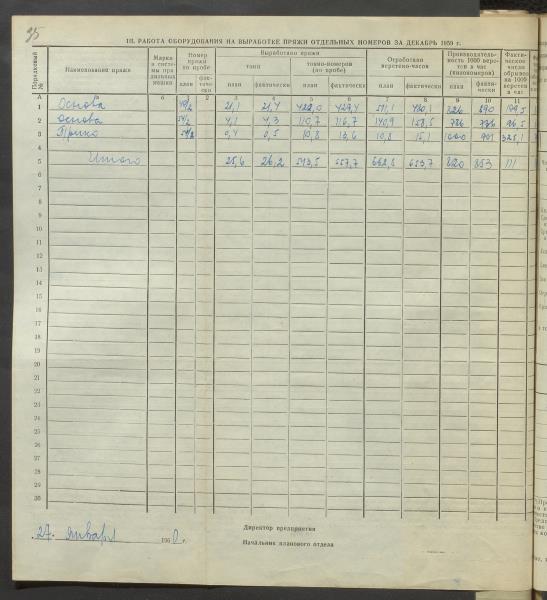 95
III. РАБОТА ОБОРУДОВАНИЯ НА ВЫРАБОТКЕ ПРЯЖИ ОТДЕЛЬНЫХ НОМЕРОВ ЗА ДЕКАБРЬ 1959 г.
Порядковый №
Наименование пряжи
Марка и системы прядильных машин
Номер пряжи по пробе
план
фактически
Выработано пряжи
тонн
план
фактически
тонно-номеров (по пробе)
план
фактически
Отработано веретено-часов
план
фактически
Производительность 1000 веретен в час (килономеров)
план
фактически
Фактическое число обрывов на 1000 веретен в час
А Б 1 2 3 4 5 6 7 8 9 10 11
1 Основа 21,1 21,4 422,0 429,4 511,1 480,1 826 890
2 основа 54/2 4,1 4,3 110,7 116,7 140,9 158,5 786 736 96,5
3 Трико 0,4 0,5 10,8 13,6 10,8 15,1 1000 901 325,1
4
5 Итого 25,6 26,2 543,5 557,7 662,8 653,7 820 853 111
6
7
8
9
10
11
12
13
14
15
16
17
18
19
20
21
22
23
24
25
26
27
28
29
30
27 января 1960 г.
Директор предприятия
Начальник планового отдела